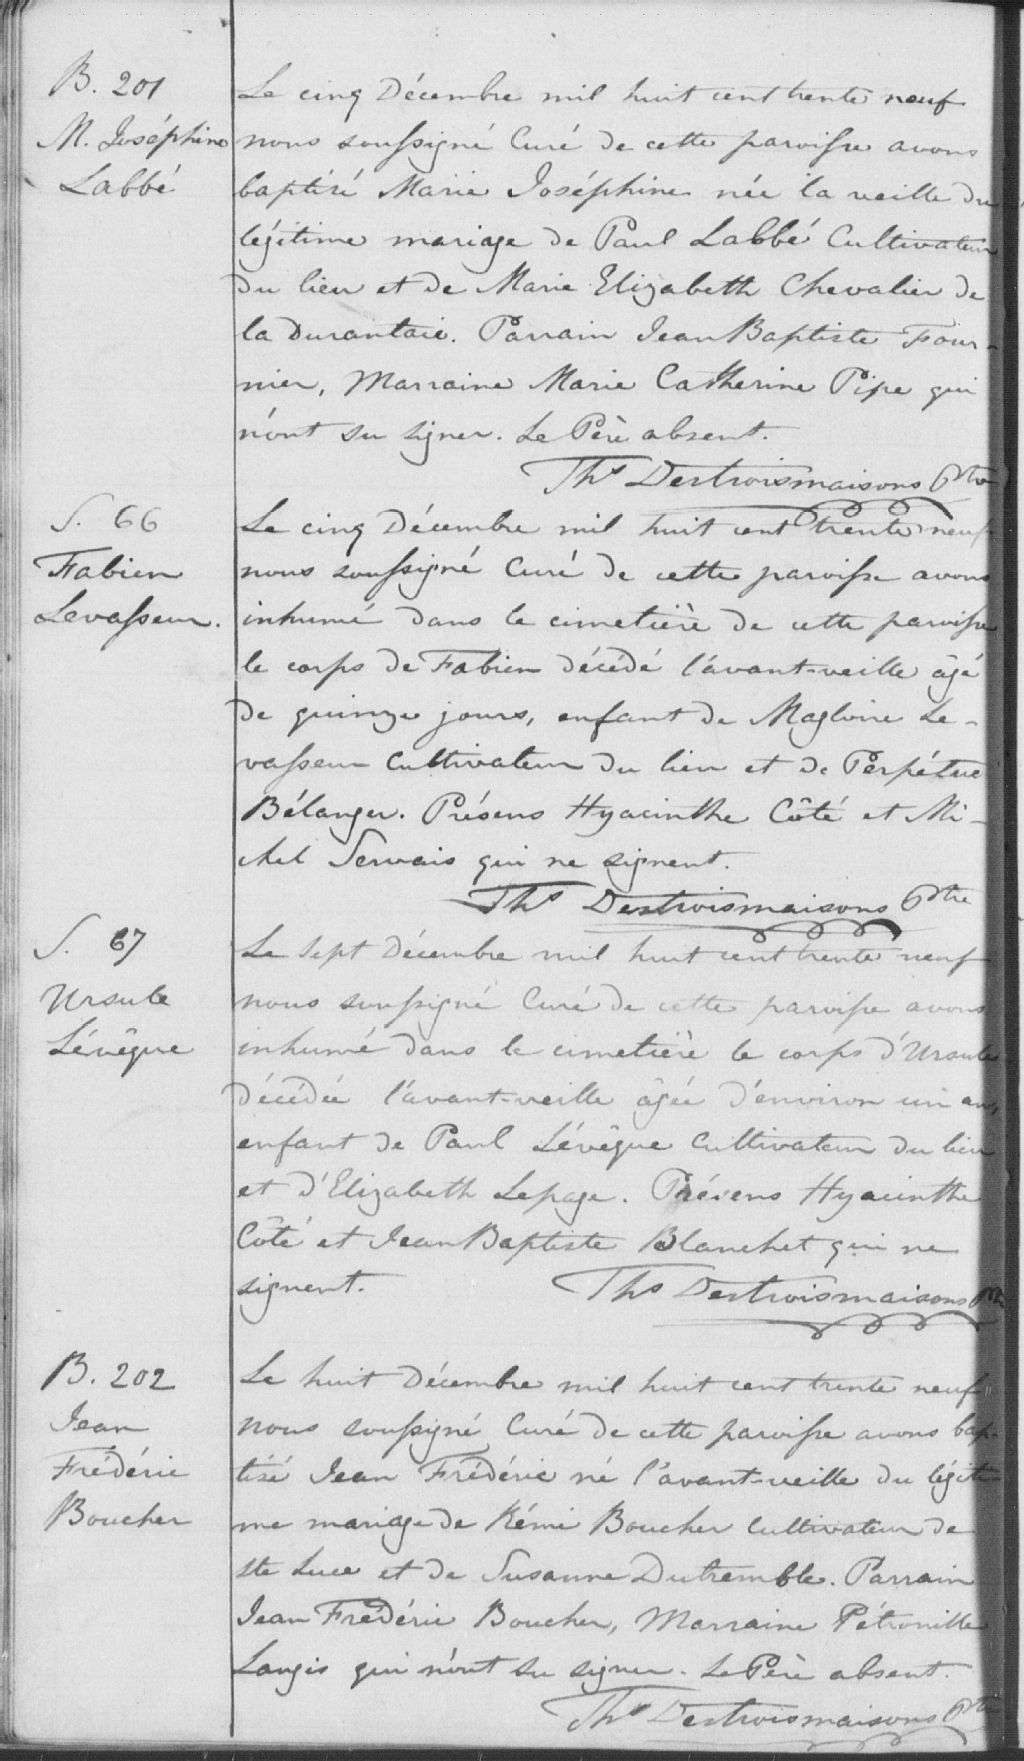 B. 201
M. Joséphine
Labbé
Le cinq Décembre mil huit cent trente neuf
nous soussigné Curé de cette paroisse avons
baptisé Marie Joséphine née la veille du
légitime mariage de Paul Labbé Cultivateur
du lieu et de Marie Elizabeth Chevalier de
la Durantaie. Parrain Jean Baptiste Four-
nier, Marraine Marie Catherine Pipe qui
n'ont su signer. Le Père absent.
Ths Destroismaisons Ptre
S. 66
Fabien
Levasseur.
Le cinq Décembre mil huit cent trente neuf
nous soussigné Curé de cette paroisse avons
inhumé dans le cimetière de cette paroisse
le corps de Fabien décédé l'avant-veille âgé
de quinze jours, enfant de Magloire Le-
vasseur Cultivateur du lieu et de Perpétue
Bélanger. Présens Hyacinthe Côté et Mi-
chel Servais qui ne signent.
Ths Destroismaisons Ptre
S. 67
Ursule
Lévêque
Le sept Décembre mil huit cent trente neuf
nous soussigné Curé de cette paroisse avons
inhumé dans le cimetière le corps d'Ursule
décédée l'avant-veille âgée d'environ un an,
enfant de Paul Lévêque Cultivateur du lieu
et d'Elizabeth Lepage. Présens Hyacinthe
Côté et Jean Baptiste Blanchet qui ne
signent.
Ths Destroismaisons Ptre
B. 202
Jean
Frédéric
Boucher
Le huit Décembre mil huit cent trente neuf
nous soussigné Curé de cette paroisse avons bap-
tisé Jean Frédéric né l'avant-veille du légiti-
me mariage de Rémi Boucher Cultivateur de
Ste Luce et de Susanne Dutremble. Parrain
Jean Frédéric Boucher, Marraine Pétronille
Langis qui n'ont su signer. Le Père absent.
Ths Destroismaisons Ptre